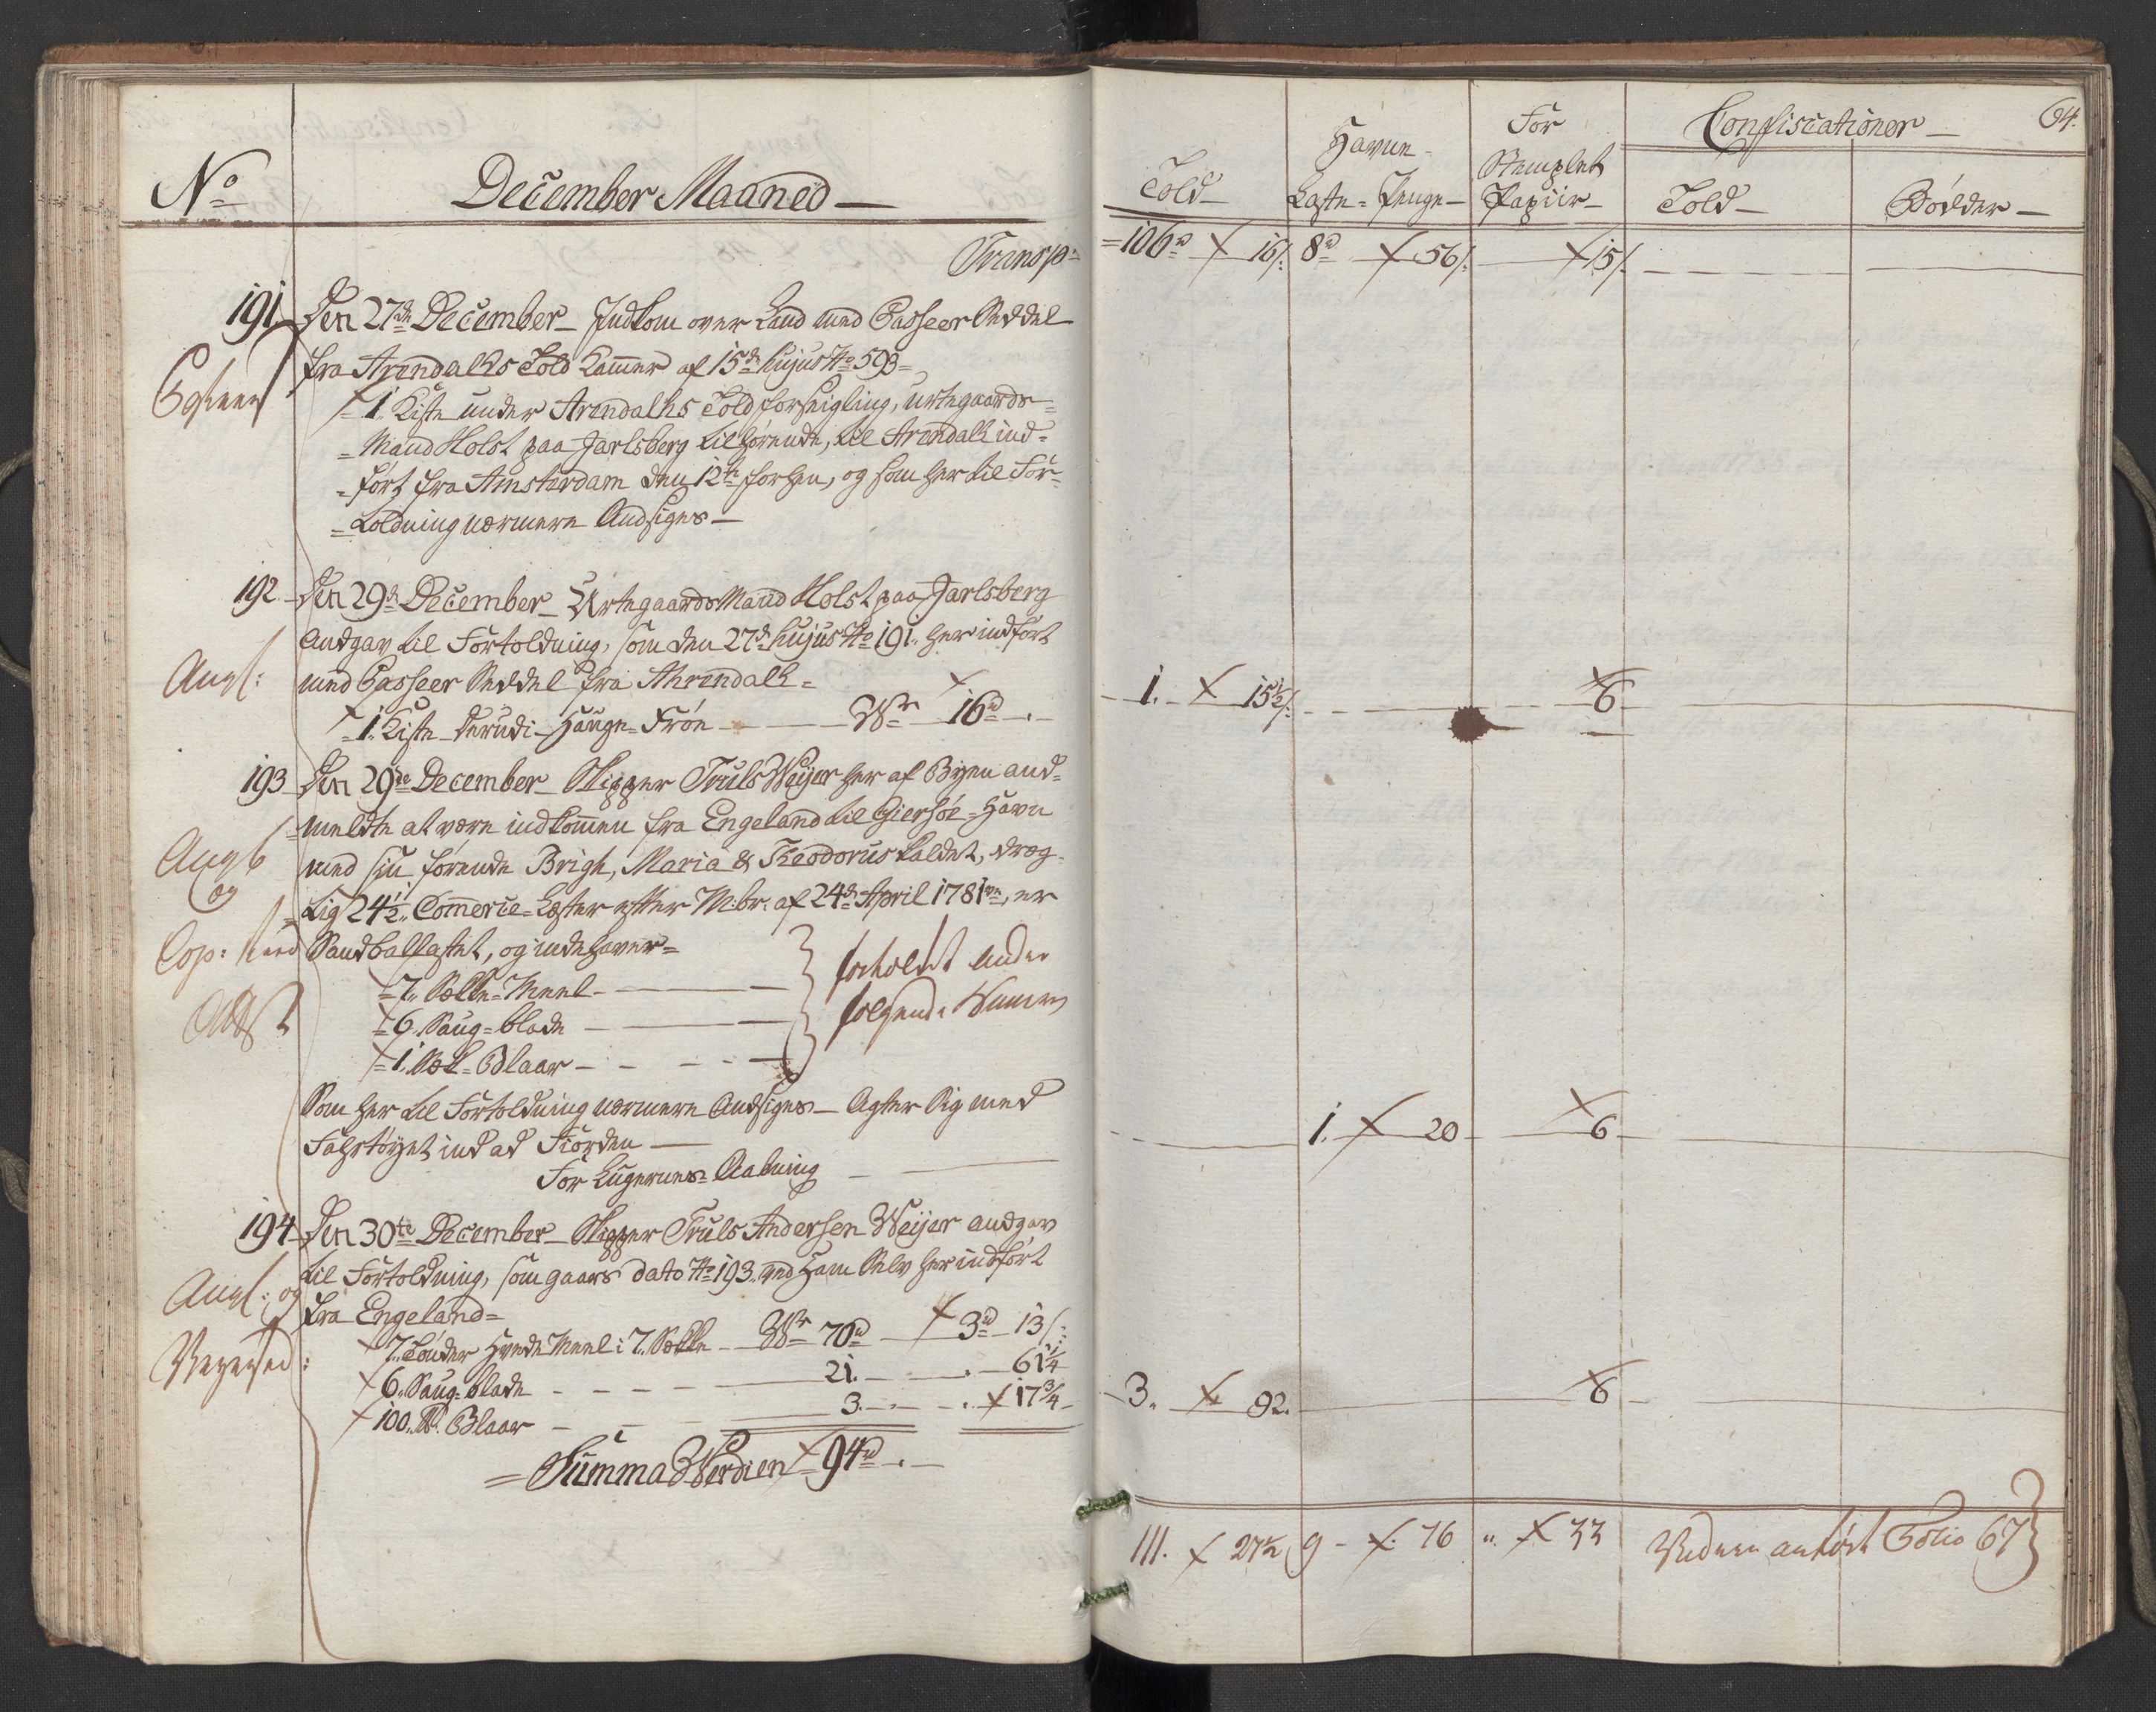 No
December Maaned
Transp:
191. Den 27de December Indkom over Land med Passeer Seddel
fra Arendahls Told Kammer af 15de hujus No 593
1. Kiste under Arendalhs Told forseigling, urtegaards-
Mand Holst paa Jarlsberg tilhørende, til Arendall ind-
ført fra Amsterdam den 12te forhen, og som her til For-
toldning nærmere Andgives
192. Den 29de December Urtegaards Mand Holst paa Jarlsberg
Andgav til Fortoldning, som den 27de hujus No 191. her indført
Angl:
med Passeer Seddel fra Ahrendall
1. Kiste derudi Hauge-Frøe Wr 16rd
193 Den 29de December Skipper Truls Weijer her af Byen and-
meldte at være indkommen fra Engeland til Giersøe-Havn
med sin førende Brigh, Maria & Theodorus kaldet, dræg-
og
tig 24½ Commerce-Læster efter M:br: af 24de April 1781, er
Cop: med
Sandballastet, og indehaver
7. Sække-Meel
6. Saug-blade
1. Sæk-Blaar
fortoldet under
følgende Numer
Som her til Fortoldning nærmere Andgives Agter Sig med
Fahrtøyet ind ad Fiorden
For Lugernes Aabning
194 Den 30te December Skipper Truls Andersen Weijer andgav
til Fortoldning, som gaars dato No 193. ved Ham Selv her indført
Angl: og
fra Engeland
7. Tønder Hvede Meel i 7. Sække Wr 70rd 3rd 13s:
6. Saug-blade 21. 61¼
100. lb. Blaar 3. 17¾
Summa Werdien 94rd
64.
Told
Havne-
Laste-Penge
For
Stemplet
Papiir
Confiscationer
Told
Bødder
106rd 16s: 8rd 56s: 15s.
1. 15½s: 6
1. 20 6
3. 92. 6
111. 27½ 9 76 " 33 Videre anført Folio 67